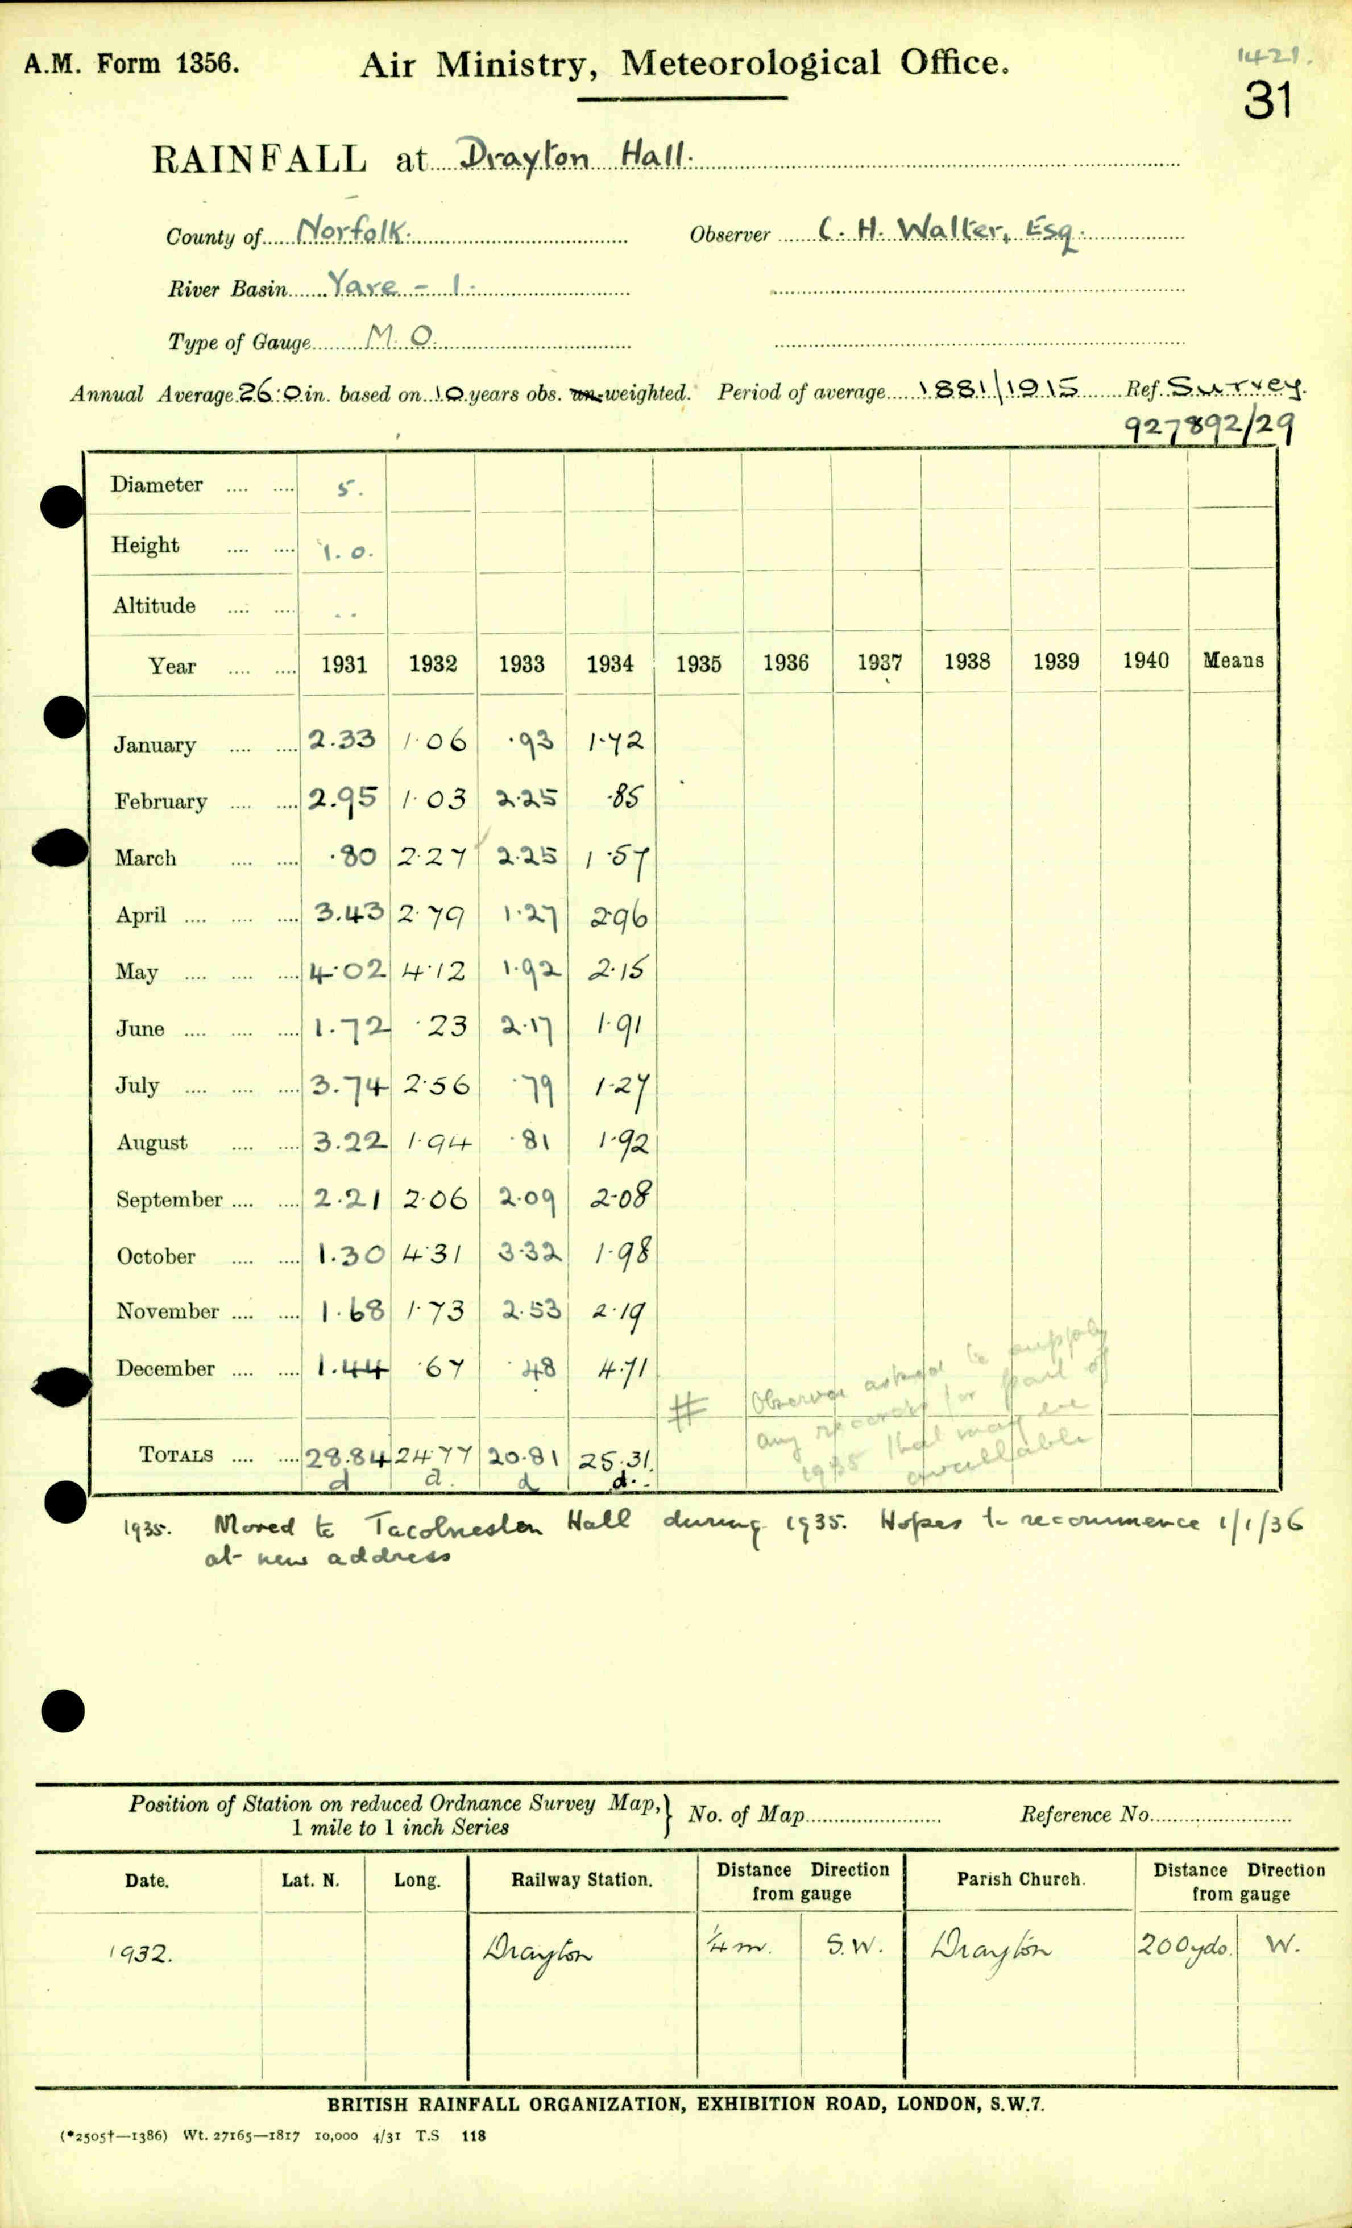 A.M. Form 1356. Air Ministry, Meteorological Office. 1421.
31
RAINFALL at Drayton Hall.
County of Norfolk. Observer C. H. Walter, Esq.
River Basin Yare - 1.
Type of Gauge M. O.
Annual Average 26.0 in. based on 10 years obs. un-weighted. Period of average 1881/1915 Ref. Survey.
927892/29
Diameter .... .... 5.
Height .... .... 1.0.
Altitude .... .... ..
Year .... .... 1931 1932 1933 1934 1935 1936 1937 1938 1939 1940 Means
January .... .... 2.33 1.06 .93 1.72
February .... .... 2.95 1.03 2.25 .85
March .... .... .80 2.27 2.25 1.57
April .... .... .... 3.43 2.79 1.27 2.96
May .... .... .... 4.02 4.12 1.92 2.15
June .... .... .... 1.72 .23 2.17 1.91
July .... .... .... 3.74 2.56 .79 1.27
August .... .... 3.22 1.94 .81 1.92
September .... .... 2.21 2.06 2.09 2.08
October .... .... 1.30 4.31 3.32 1.98
November .... .... 1.68 1.73 2.53 2.19
December .... .... 1.44 .67 .48 4.71
# Observer asked to supply
any records for part of
1935 that may be
available
TOTALS .... .... 28.84 24.77 20.81 25.31.
d d. d d.
1935. Moved to Tacolneston Hall during 1935. Hopes to recommence 1/1/36
at new address
Position of Station on reduced Ordnance Survey Map, 1 mile to 1 inch Series } No. of Map Reference No.
Date. Lat. N. Long. Railway Station. Distance Direction from gauge Parish Church. Distance Direction from gauge
1932. Drayton ¼ m. S.W. Drayton 200 yds. W.
BRITISH RAINFALL ORGANIZATION, EXHIBITION ROAD, LONDON, S.W.7.
(*2505†—1386) Wt. 27165—1817 10,000 4/31 T.S 118